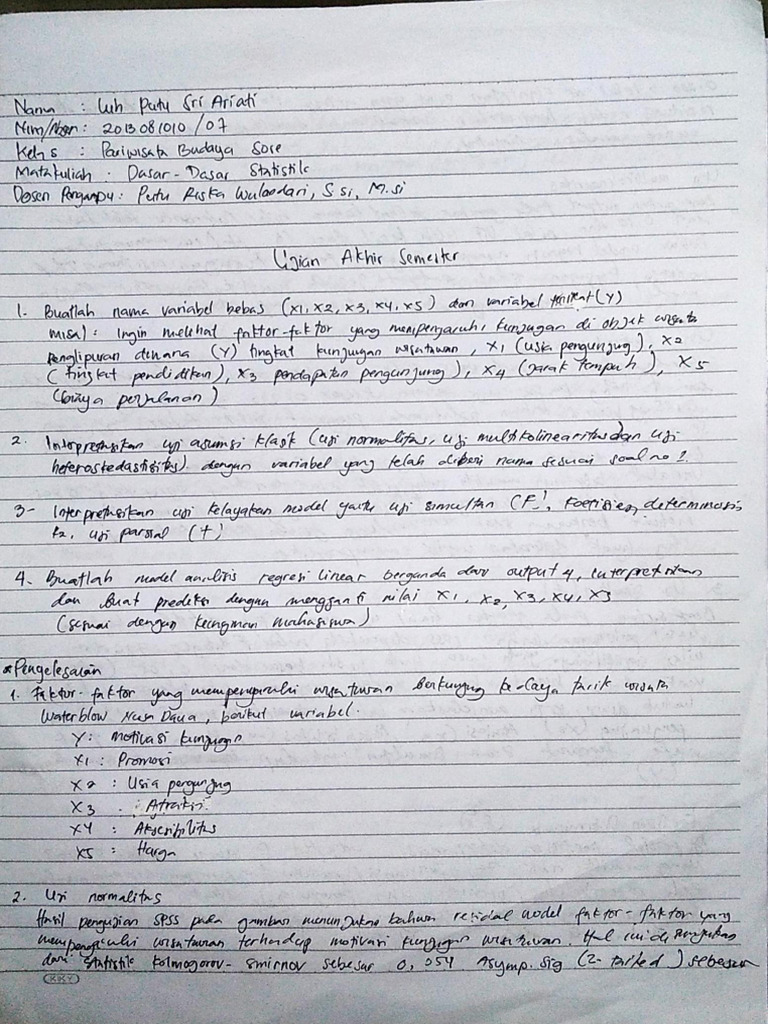 Nama : Luh Putu Sri Ariati
Nim/Absen : 2013081010 / 07
Kelas : Pariwisata Budaya Sore
Matakuliah : Dasar-Dasar Statistik
Dosen Pengampu : Putu Riska Wulandari, S.Si, M.Si
Ujian Akhir Semester
1. Buatlah nama variabel bebas (X1, X2, X3, X4, X5) dan variabel terikat (Y)
misal : Ingin melihat faktor-faktor yang mempengaruhi kunjungan di objek wisata
Penglipuran dimana (Y) tingkat kunjungan wisatawan, X1 (usia pengunjung), X2
(tingkat pendidikan), X3 pendapatan pengunjung), X4 (Jarak tempuh), X5
(biaya perjalanan)
2. Interpretasikan uji asumsi klasik (uji normalitas, uji multikolinearitas dan uji
heteroskedastisitas) dengan variabel yang telah diberi nama sesuai soal no 1.
3- Interpretasikan uji kelayakan model yaitu uji simultan (F), koefisien determinasi
R2, uji parsial (t)
4. Buatlah model analisis regresi linear berganda dari output 4, interpretasikan
dan buat prediksi dengan mengganti nilai X1, X2, X3, X4, X5
(sesuai dengan keinginan mahasiswa)
*Penyelesaian
1. Faktor-faktor yang mempengaruhi wisatawan berkunjung ke daya tarik wisata
Waterblow Nusa Daua, berikut variabel.
Y : Motivasi kunjungan
X1 : Promosi
X2 : Usia pengunjung
X3 : Atraksi
X4 : Aksesibilitas
X5 : Harga
2. Uji normalitas
Hasil pengujian SPSS pada gambar menunjukan bahwa residual model faktor-faktor yang
mempengaruhi wisatawan terhadap motivasi kunjungan wisatawan. Hal ini di tunjukan
dari statistik Kolmogorov-Smirnov sebesar 0,054 Asymp. Sig (2-tailed) sebesar
KKY